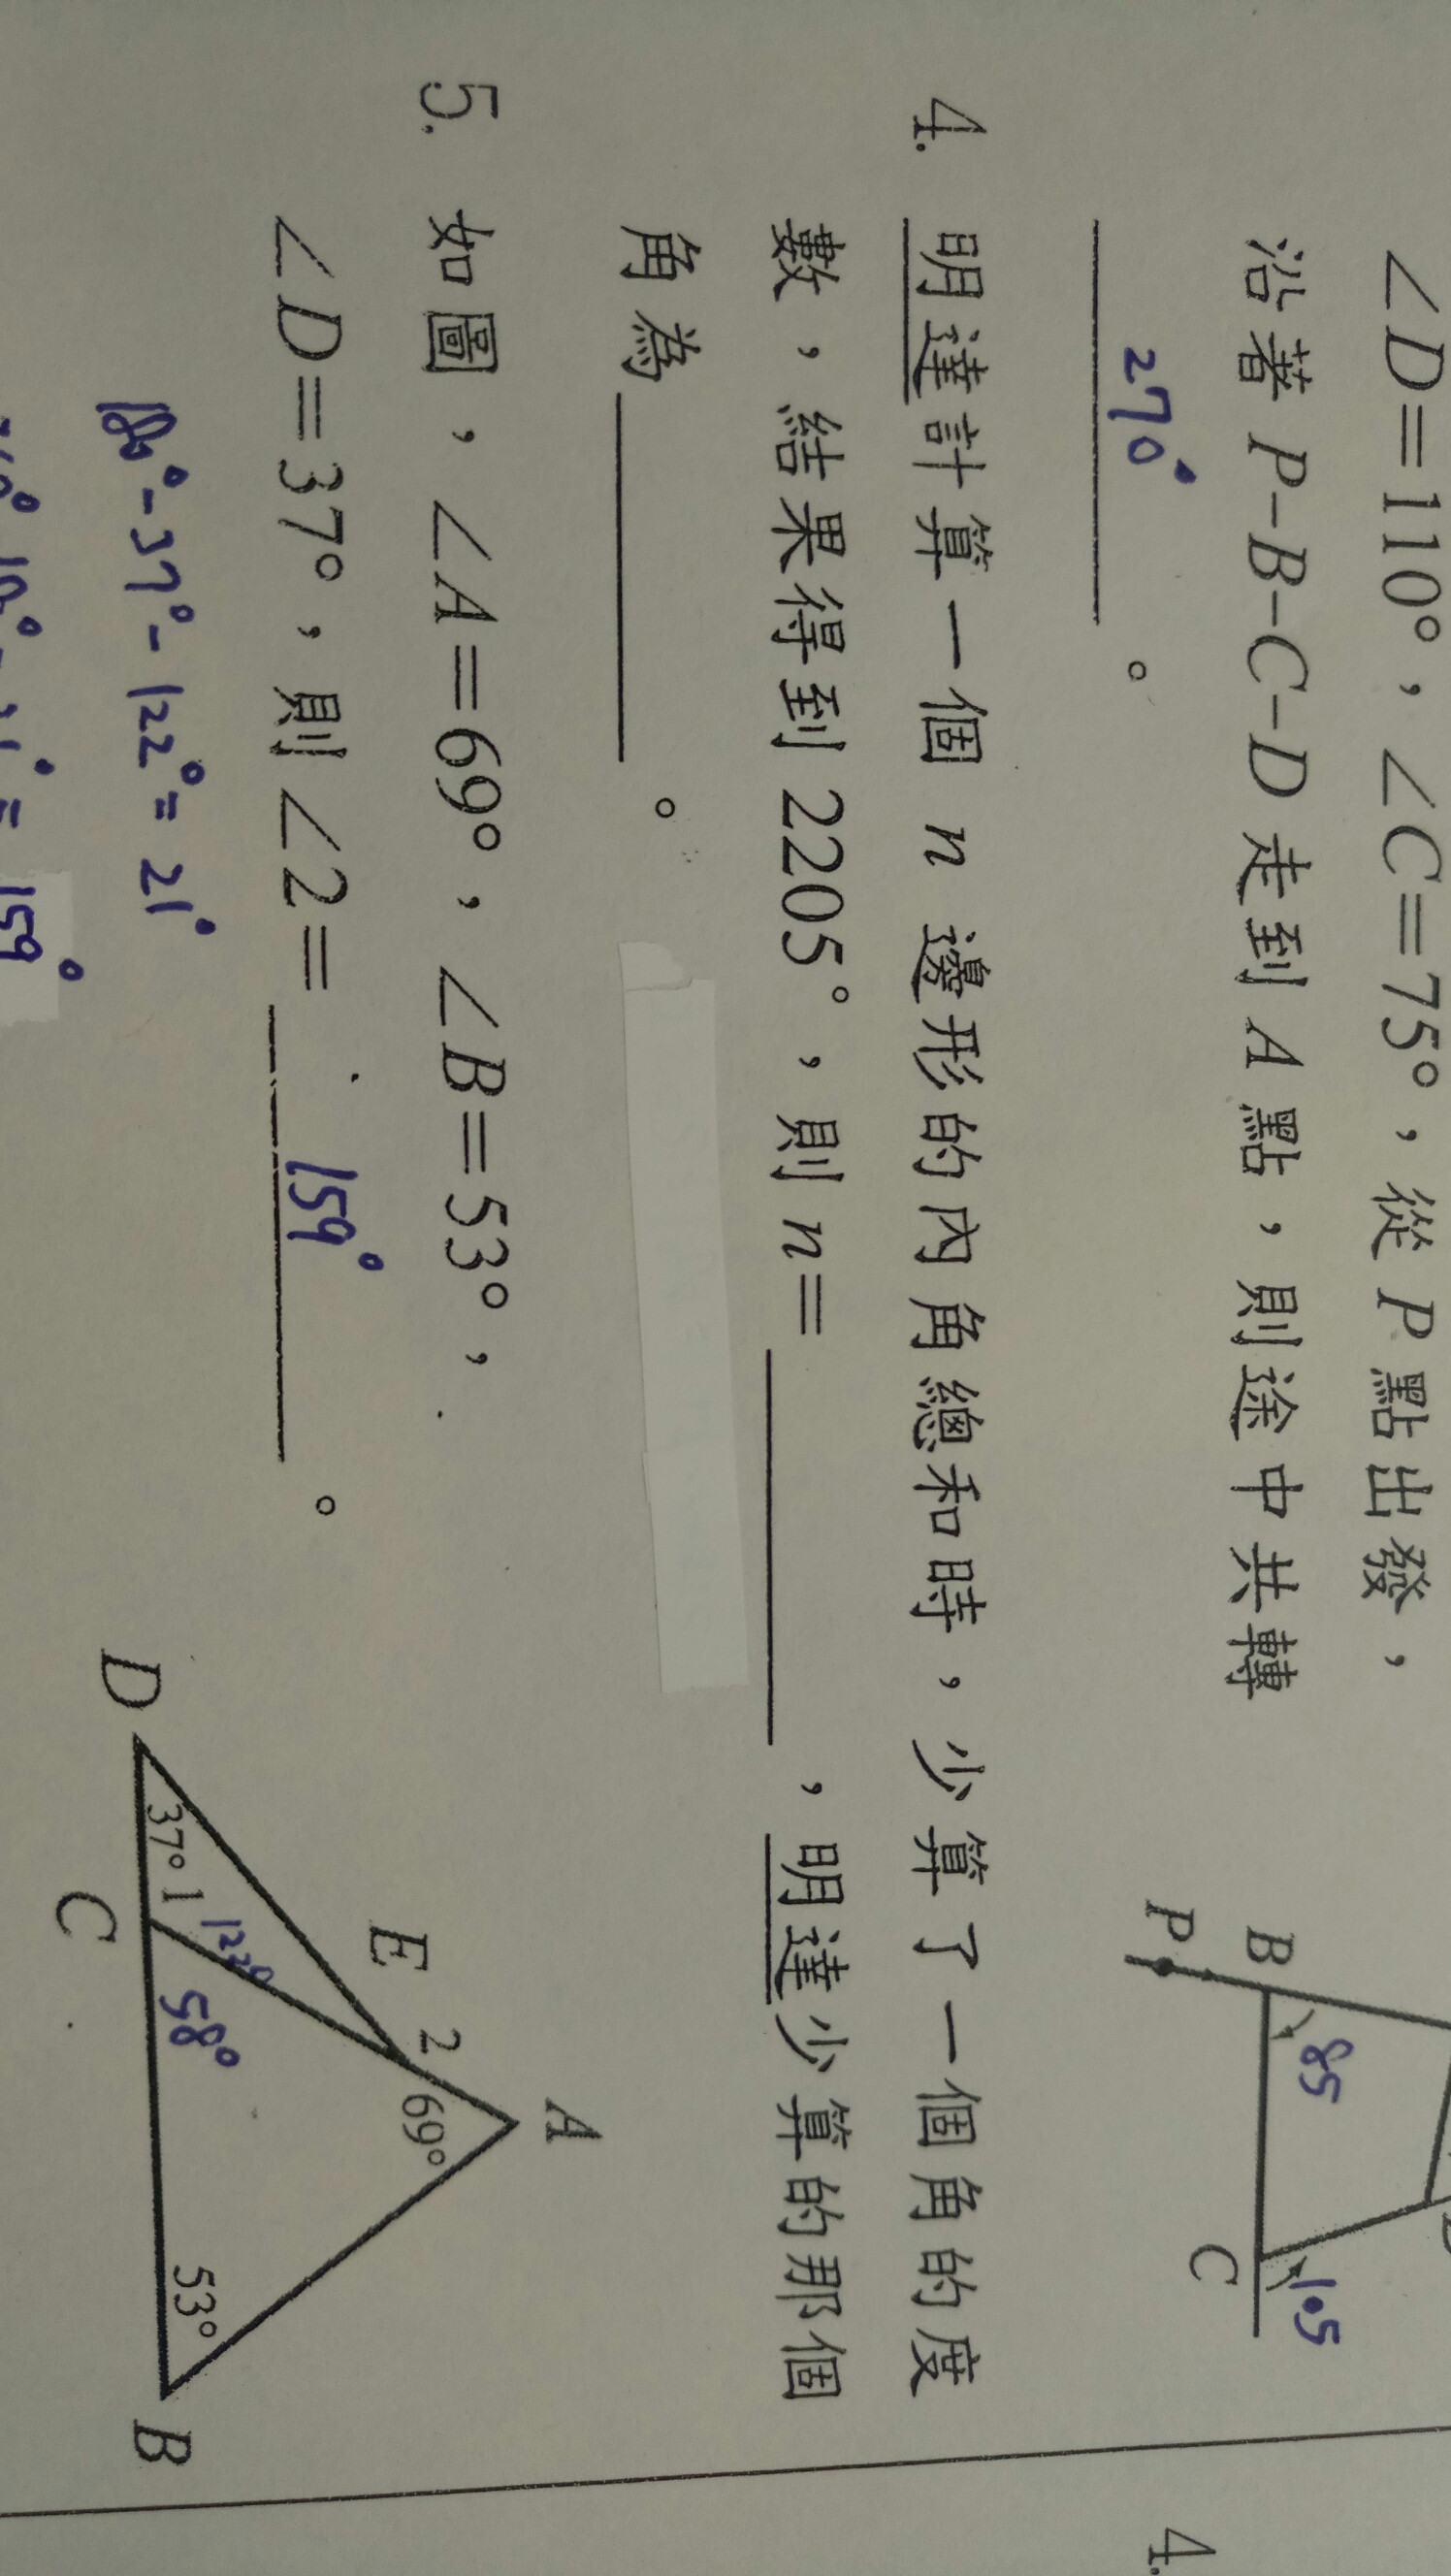 ∠D=110°，∠C=75°，從P點出發，
沿著P-B-C-D走到A點，則途中共轉
270°。
4. 明達計算一個n邊形的內角總和時，少算了一個角的度
數，結果得到2205°，則n=＿＿＿＿，明達少算的那個
角為＿＿＿＿。
5. 如圖，∠A=69°，∠B=53°，
∠D=37°，則∠2= 159°。
180°-37°-122°=21°
=159°
P
B
85
C
105
A
E
2
69°
D
37°
1
122°
58°
C
53°
B
4.